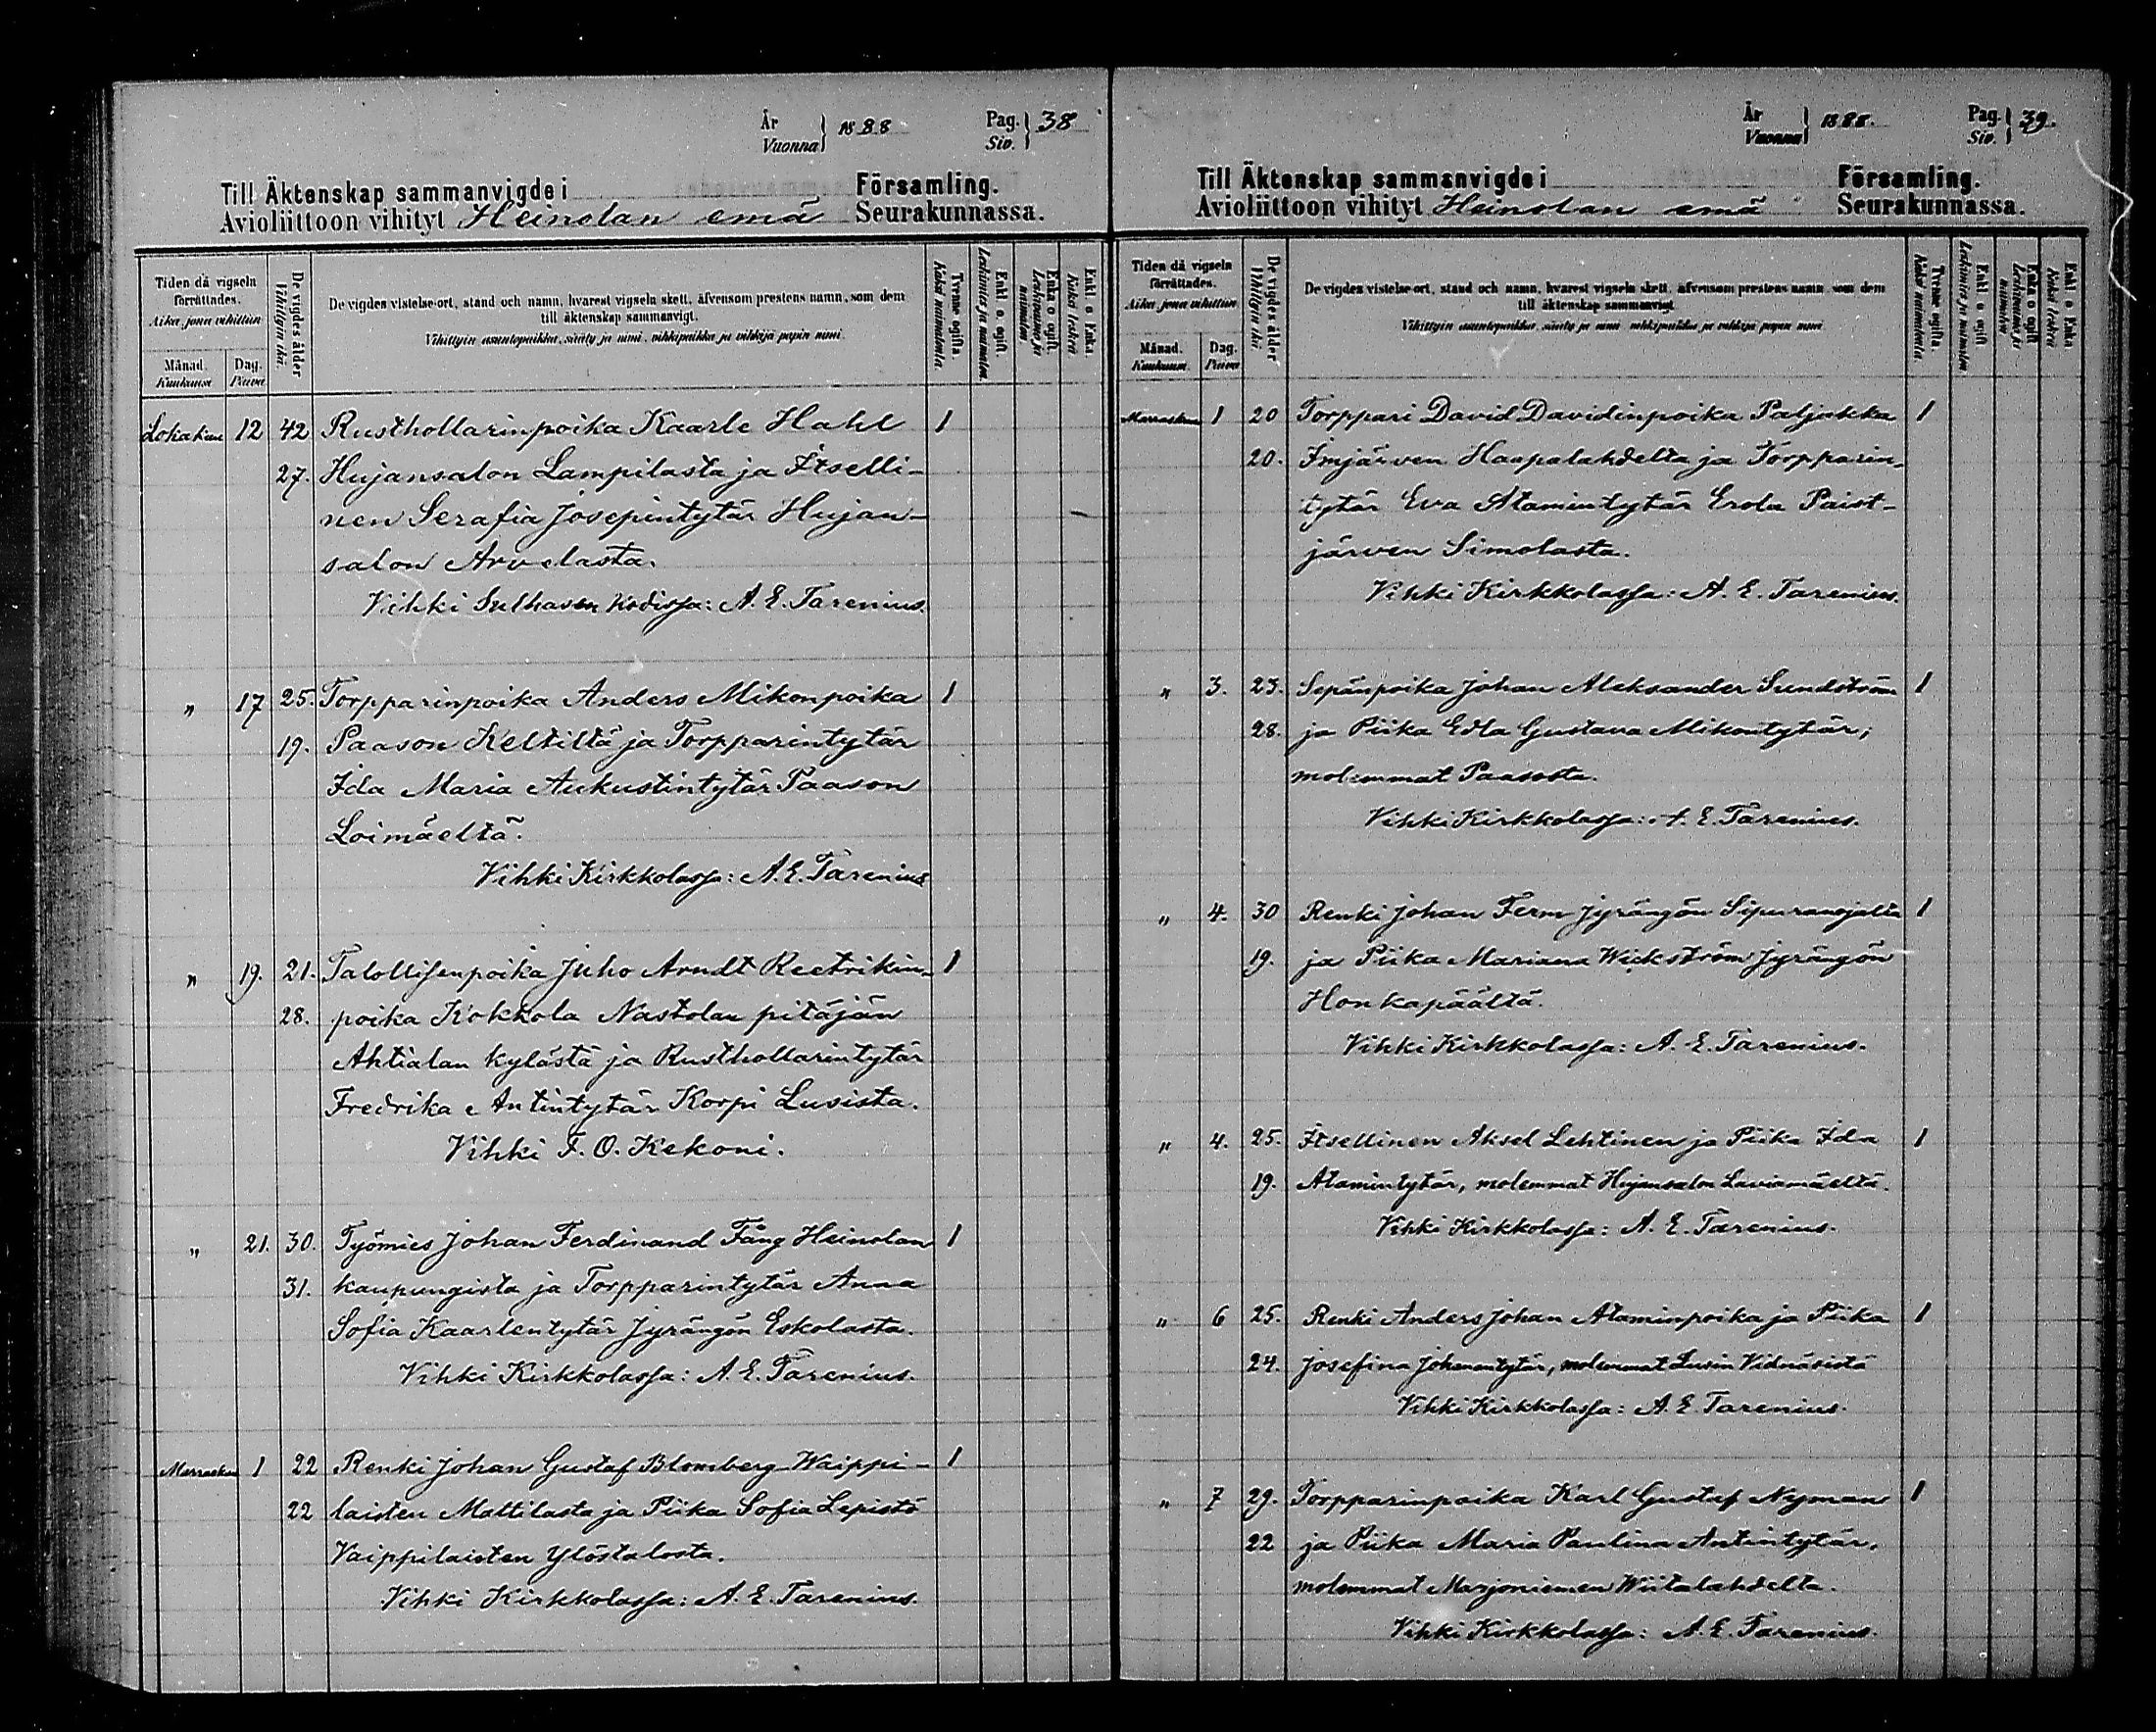 År
Vuonna } 1888
Pag.
Siv. } 38
Till Äktenskap sammanvigde i Församling.
Avioliittoon vihityt Heinolan emä Seurakunnassa.
Tiden då vigseln förrättades.
Aika, jona vihittiin
Månad.
Kuukausi
Dag.
Päivä
De vigdes ålder
Vihittyin ikä.
De vigdes vistelse-ort, stånd och namn, hvarest vigseln skett, äfvensom prestens namn, som dem
till äktenskap sammanvigt.
Vihittyin asuntopaikka, sääty ja nimi, vihkipaikka ja vihkijä papin nimi.
Tvenne ogifta
Kaksi naimatonta
Enkl. o. ogift.
Leskimies ja naimaton.
Enka o ogift.
Leskivaimo ja naimaton
Enkl. o Enka
Kaksi leskeä
Lokakuu 12 42 Rusthollarinpoika Kaarle Hahl 1
27. Hujansalon Lampilasta ja Itselli-
nen Serafia Josepintytär Hujan-
salon Arvelasta.
Vihki Sulhasen kodissa: A. E. Tarenius.
" 17 25. Torpparinpoika Anders Mikonpoika 1
19. Paason Keltiltä ja Torpparintytär
Ida Maria Aukustintytär Paason
Loimäeltä.
Vihki Kirkkolassa: A. E. Tarenius
" 19. 21. Talollisenpoika Juho Arndt Reetrikin- 1
28. poika Kokkola Nastolan pitäjän
Ahtialan kylästä ja Rusthollarintytär
Fredrika Antintytär Korpi Lusista.
Vihki F. O. Kekoni.
" 21. 30. Työmies Johan Ferdinand Fång Heinolan 1
31. kaupungista ja Torpparintytär Anna
Sofia Kaarlentytär Jyrängön Eskolasta.
Vihki Kirkkolassa: A. E. Tarenius.
Marraskuu 1 22 Renki Johan Gustaf Blomberg Waippi- 1
22 laisten Mattilasta ja Piika Sofia Lepistö
Vaippilaisten Ylöstalosta.
Vihki Kirkkolassa: A. E. Tarenius.
År
Vuonna } 1888.
Pag.
Siv. } 39.
Till Äktenskap sammanvigde i Församling.
Avioliittoon vihityt Heinolan emä Seurakunnassa.
Tiden då vigseln förrättades.
Aika, jona vihittiin
Månad.
Kuukausi.
Dag.
Päivä
De vigdes ålder
Vihittyin ikä.
De vigdes vistelse-ort, stånd och namn, hvarest vigseln skett, äfvensom prestens namn, som dem
till äktenskap sammanvigt.
Vihittyin asuntopaikka, sääty ja nimi, vihkipaikka ja vihkijä papin nimi.
Tvenne ogifta.
Kaksi naimatonta.
Enkl. o ogift.
Leskimies ja naimaton
Enka o ogift
Leskivaimo ja naimaton
Enkl. o Enka
Kaksi leskeä
Marraskuu 1 20 Torppari David Davidinpoika Paljakka 1
20. Imjärven Haapalahdelta ja Torpparin-
tytär Eva Atamintytär Erola Paist-
järven Simolasta.
Vihki Kirkkolassa: A. E. Tarenius.
" 3. 23. Sepänpoika Johan Aleksander Sundström 1
28. ja Piika Edla Gustava Mikontytär;
molemmat Paasosta.
Vihki Kirkkolassa: A. E. Tarenius.
" 4. 30 Renki Johan Ferm Jyrängön Sipuranojalta 1
19. ja Piika Mariana Wickström Jyrängön
Honkapäältä.
Vihki Kirkkolassa: A. E. Tarenius.
" 4. 25. Itsellinen Aksel Lehtinen ja Piika Ida 1
19. Atamintytär, molemmat Hujansalon Laviamäeltä.
Vihki Kirkkolassa: A. E. Tarenius.
" 6 25. Renki Anders Johan Ataminpoika ja Piika 1
24. Josefina Johanantytär, molemmat Lusin
Vihki Kirkkolassa: A. E. Tarenius.
" 7 29. Torpparinpoika Karl Gustaf Nyman 1
22 ja Piika Maria Paulina Antintytär,
molemmat Marjoniemen Wiitalahdelta.
Vihki Kirkkolassa: A. E. Tarenius.